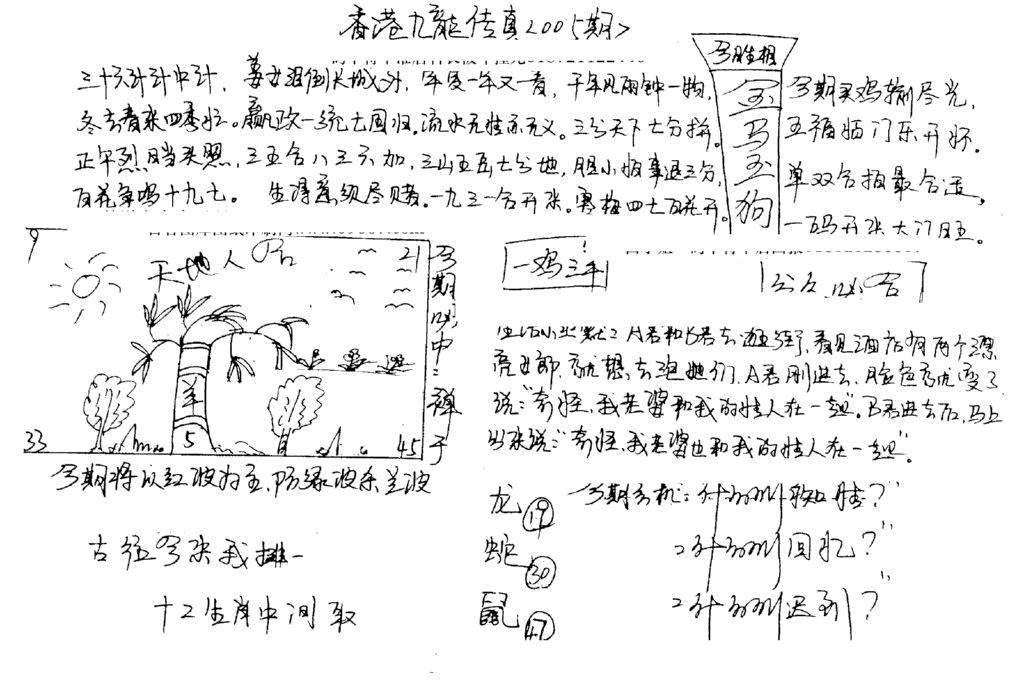 香港九龍传真2005期
三十六计计中计，姜女泪倒长城外，年复一年又一春，千年风雨钟一物，
冬去春来四季忙。嬴政一统七国归。流水无情亦无义。三分天下七分拼。
正午烈日当头照，三五合八三六加，三山五岳七分地，胆小怕事退三分，
百花争鸣十九七。生得意须尽赌。一九三一合开张。寒梅四七百花开。
今期买鸡输尽光，
五福临门乐开怀。
单双合拍最合适，
一码开张大门旺。
今
金
马
玉
狗
9
21
天地人
羊
33
5
45
今期必中：禅子
今期将以红波为主、防绿波杀兰波
古往今来我排一
十二生肖中间取
一鸡三羊
A君和B君去逛街，看见酒店有两个漂
亮女郎，就想去泡她们，A君刚进去，脸色就变了
说：“奇怪，我老婆和我的情人在一起”。B君进去后，马上
出来说：“奇怪，我老婆也和我的情人在一起”。
龙 19
蛇 30
鼠 47
今期玄机：
什么叫
什么叫回忆？”
什么叫迟到？”